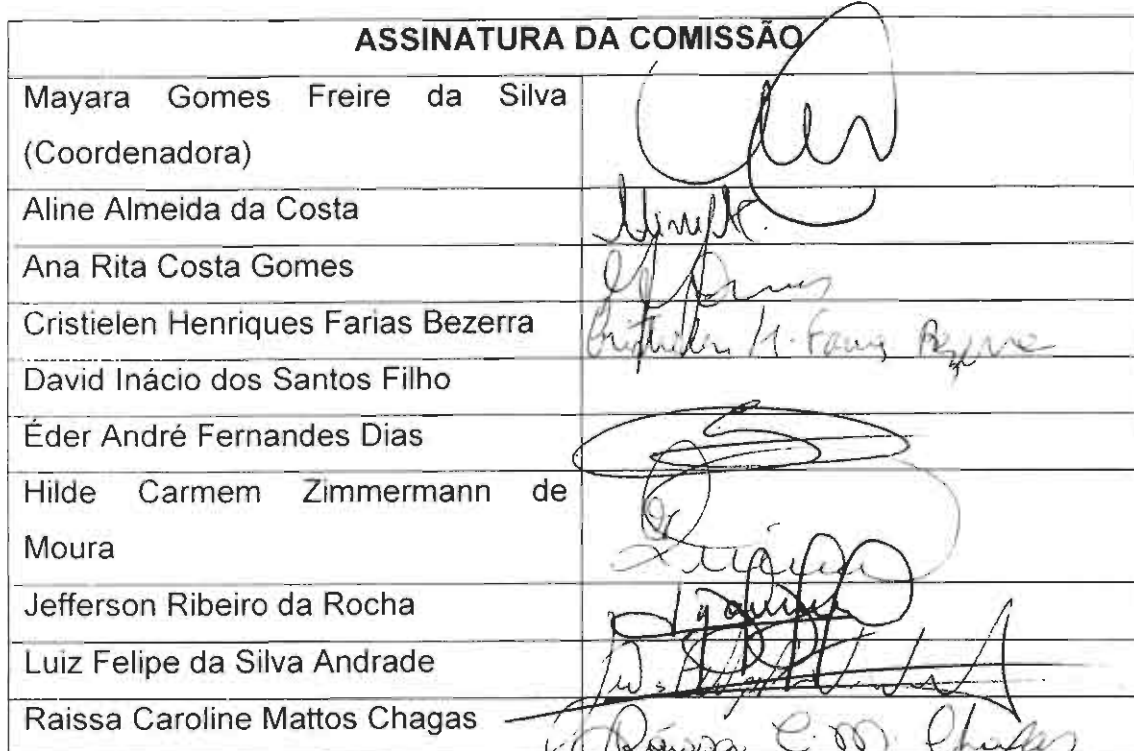 ASSINATURA DA COMISSÃO
Mayara Gomes Freire da Silva
(Coordenadora)
Aline Almeida da Costa
Ana Rita Costa Gomes
Cristielen Henriques Farias Bezerra
Cristielen H. Farias Bezerra
David Inácio dos Santos Filho
Éder André Fernandes Dias
Hilde Carmem Zimmermann de
Moura
Jefferson Ribeiro da Rocha
Luiz Felipe da Silva Andrade
Raissa Caroline Mattos Chagas
Raissa C. M. Chagas